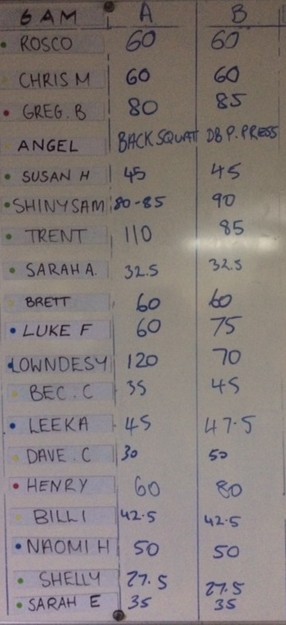 6 AM A B
ROSCO 60 60
CHRIS M 60 60
GREG. B 80 85
ANGEL BACK SQUAT DB P. PRESS
SUSAN H 45 45
SHINY SAM 80-85 90
TRENT 110 85
SARAH A. 32.5 32.5
BRETT 60 60
LUKE F 60 75
LOWNDESY 120 70
BEC. C 35 45
LEEKA 45 47.5
DAVE. C 30 50
HENRY 60 80
BILLI 42.5 42.5
NAOMI H 50 50
SHELLY 27.5 27.5
SARAH E 35 35